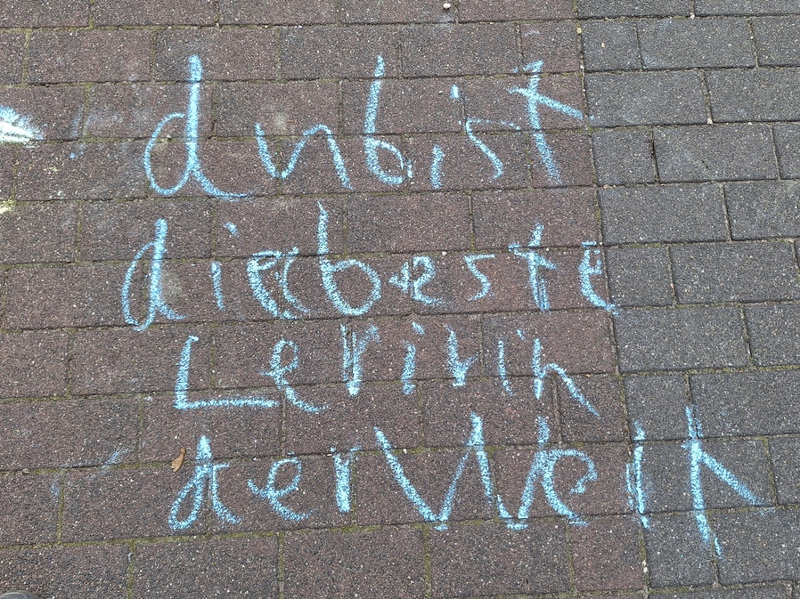 du bist
die beste
Leririn
der Welt